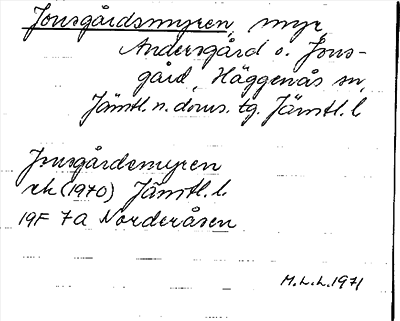 Jonsgårdsmyren, myr,
Andersgård o. Jons-
gård, Häggenås sn,
Jämtl. n. doms. tg. Jämtl. l
Jonsgårdsmyren
ek (1970) Jämtl. l.
19F 7a Norderåsen
M.L.L. 1971